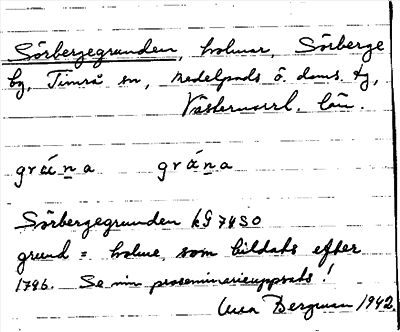 Sörbergegrunden, holmar, Sörberge
by, Timrå sn, Medelpads ö. doms. tg,
Västernorrl. län.
grána grána
Sörbergegrunden kG 74 SO
grund = holme, som bildats efter
1796. Se min proseminarieuppsats!
Bergman 1942.